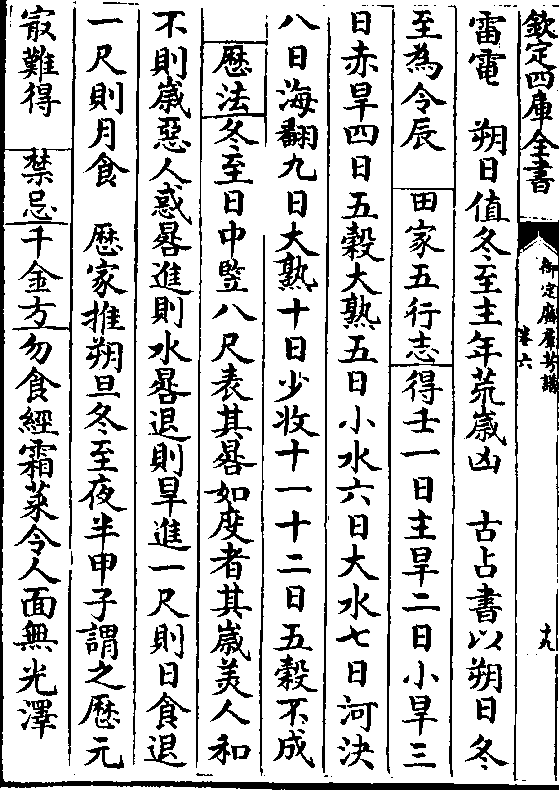 欽定四庫全書
御定月令輯要
卷六
十九
雷電　朔日值冬至主年荒歲凶　古占書以朔日冬
至為令辰　田家五行志得壬一日主旱二日小旱三
日赤旱四日五穀大熟五日小水六日大水七日河決
八日海翻九日大熟十日少收十一十二日五穀不成
厯法冬至日中豎八尺表其晷如度者其歲美人和
不則歲惡人惑晷進則水晷退則旱進一尺則日食退
一尺則月食　厯家推朔旦冬至夜半甲子謂之厯元
㝡難得　禁忌千金方勿食經霜菜令人面無光澤